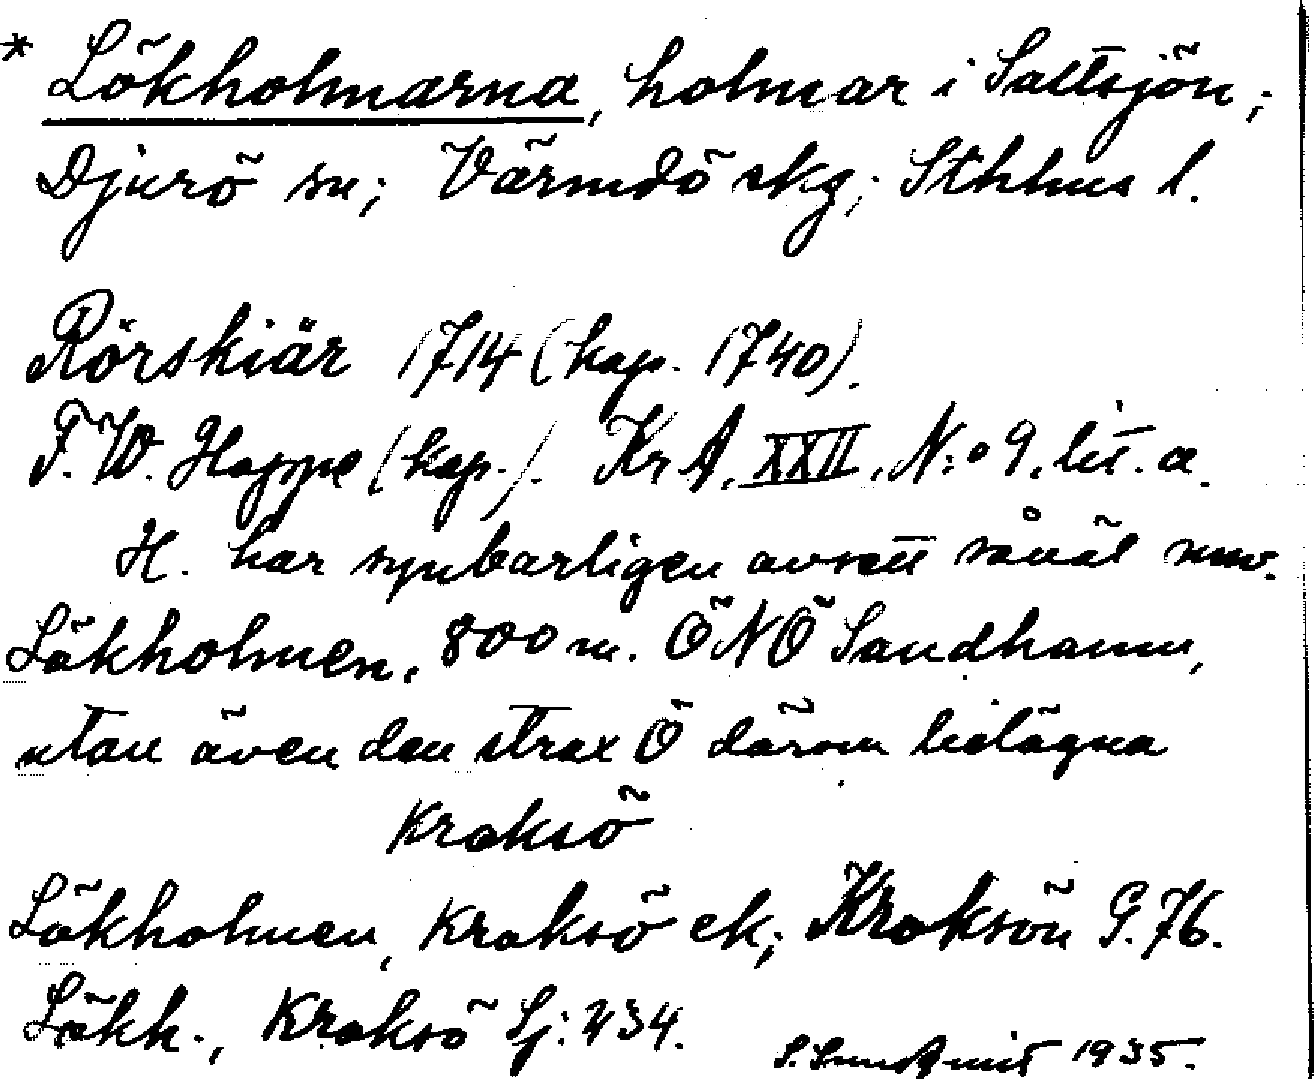 * Lökholmarna, holmar i Saltsjön;
Djurö sn; Värmdö skg; Sthlms l.
Rörskiär 1714 (kop. 1740).
F. W. Hoppe (kop.). Kr A, XXII, N:o 9, lit. a.
H. har synbarligen avsett såväl nuv.
Lökholmen, 800 m. ÖNÖ Sandhamn,
utan även den strax Ö därom belägna
Kroksö
Lökholmen, Kroksö ek; Kroksön G. 76.
Lökh., Kroksö Sj: 234.
1935.